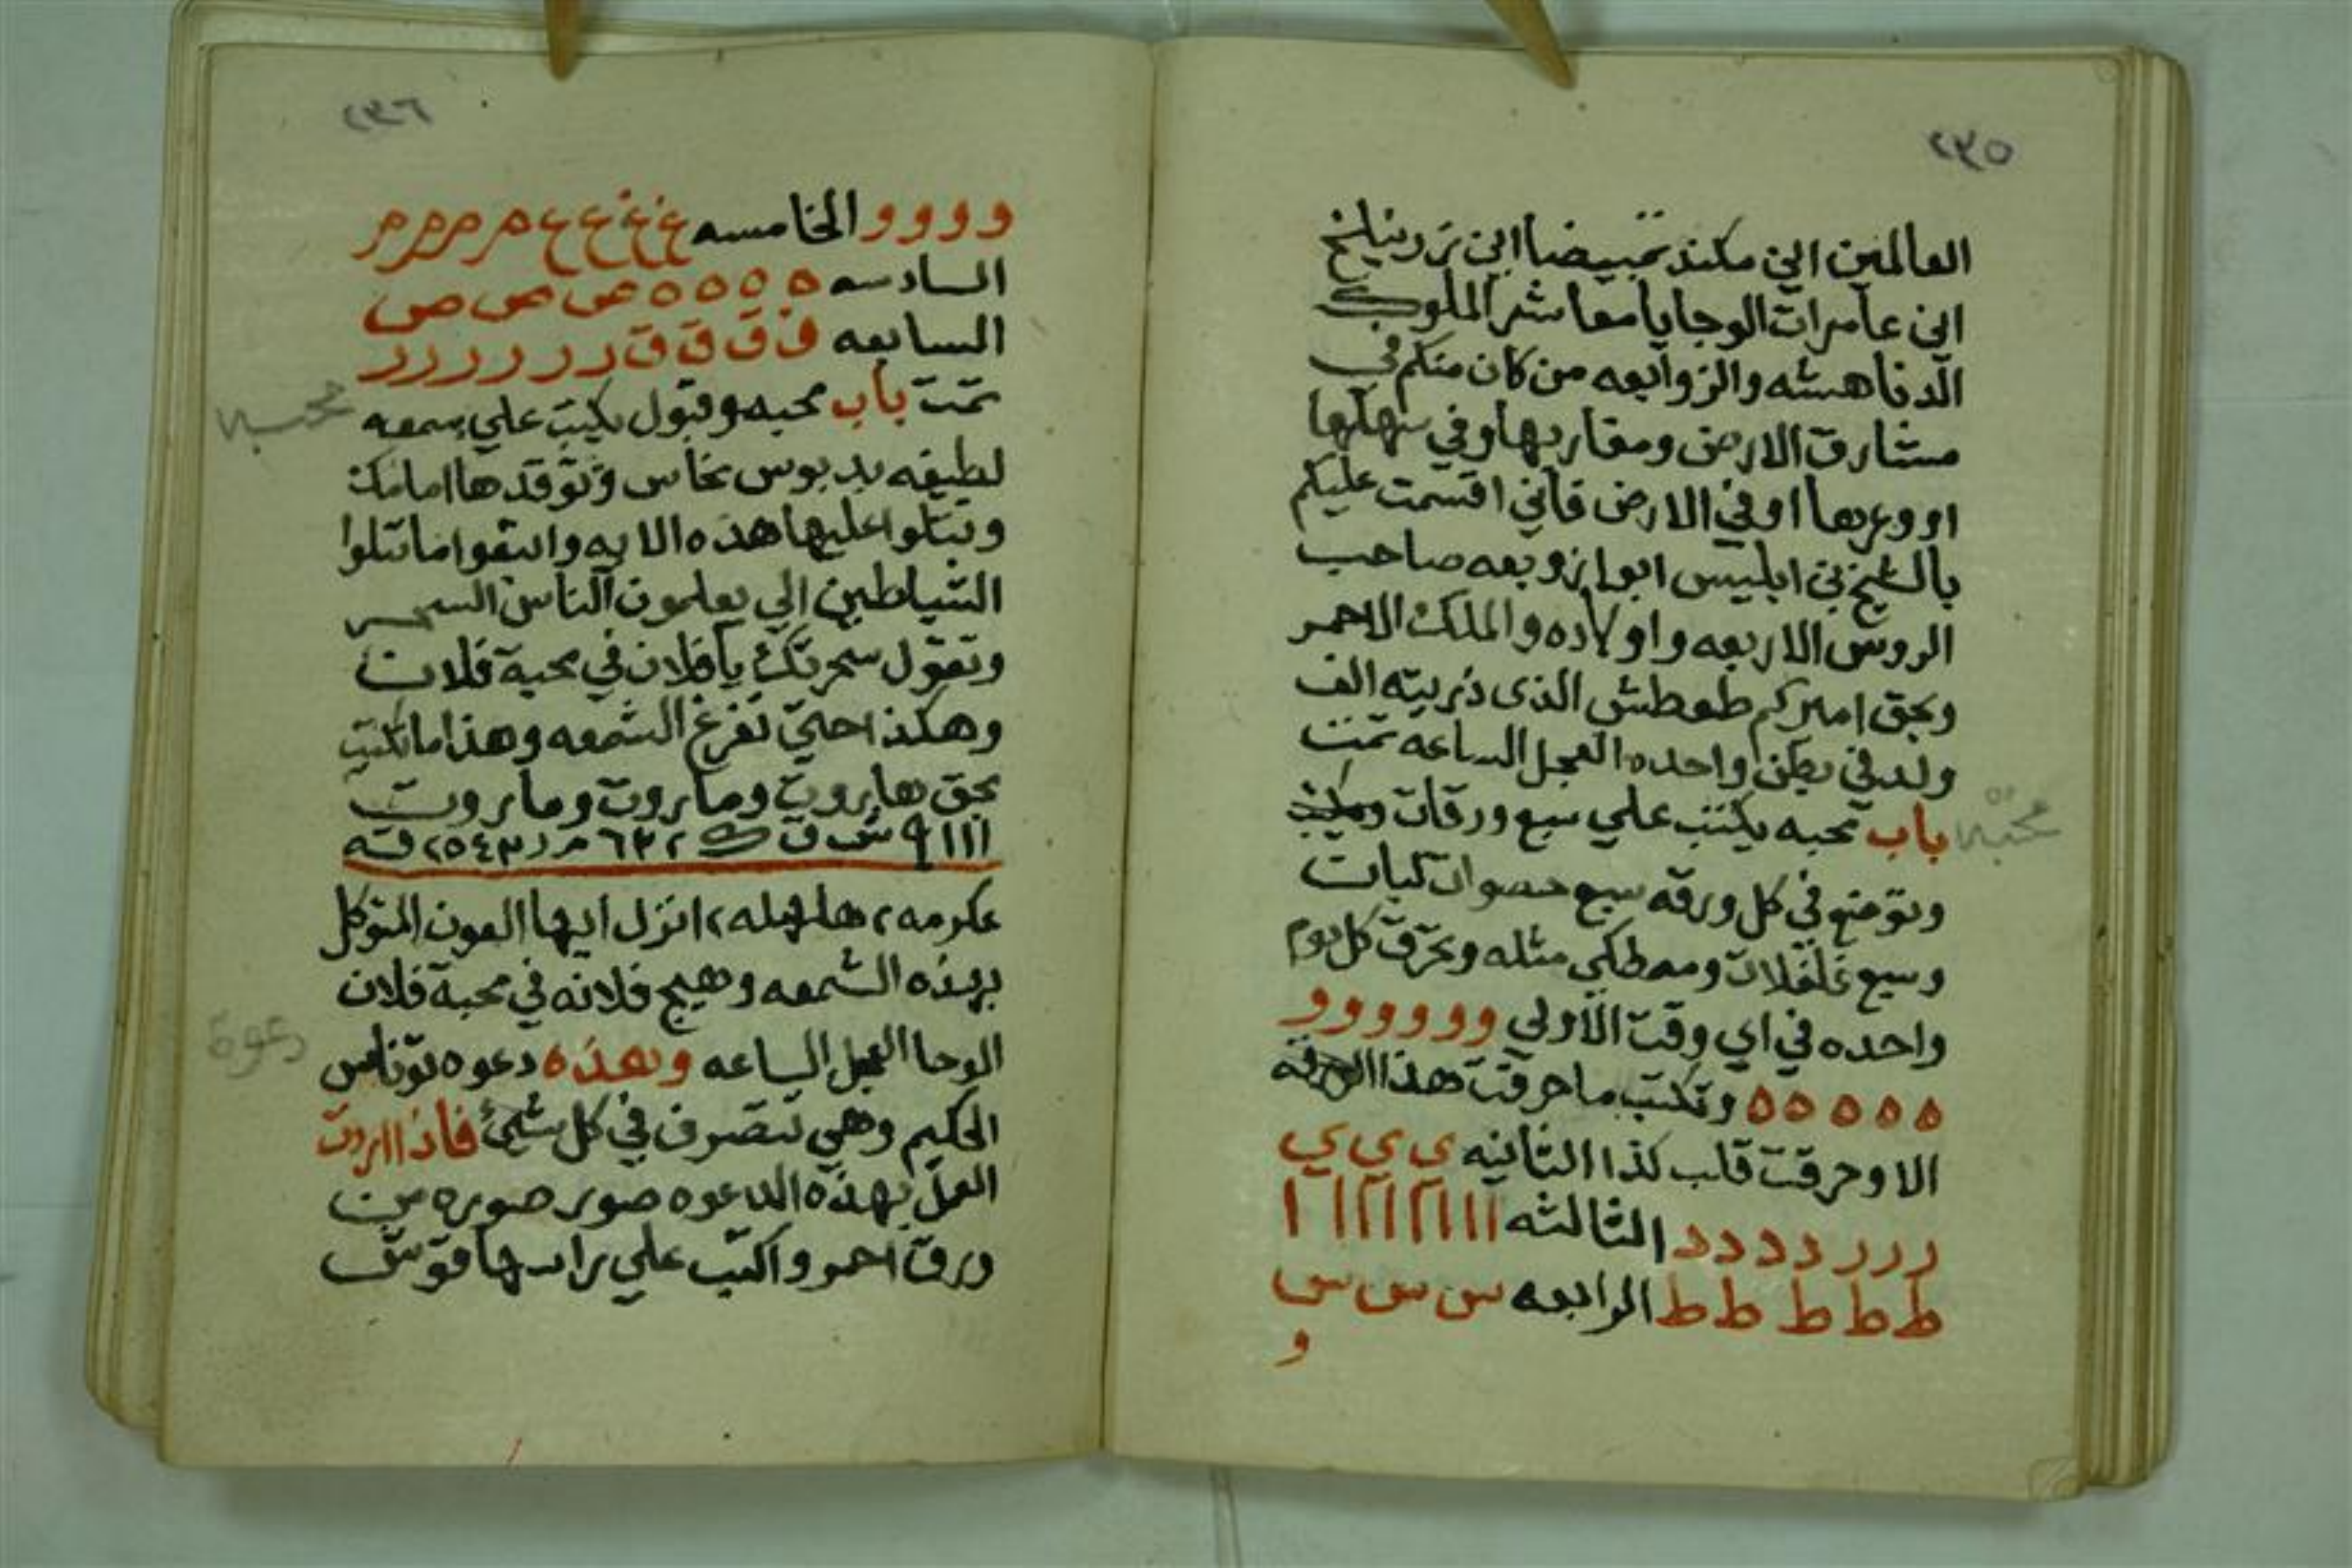 ٢٣٥
العالمين اين مكند تبيضا اين
اين عامرات الوجا يا معاشر الملوك
الدناهشه والزوابعه من كان منكم في
مشارق الارض ومغاربها وفي سهلها
او وعرها او في الارض فاني اقسمت عليكم
بالشيخ بن ابليس ابوا زوبعه صاحب
الروس الاربعه واولاده والملك الاحمر
وبحق اميركم طمطش الذى ذريته الف
ولد في بطن واحده العجل الساعه تمت
محبه
باب محبه يكتب علي سبع ورقات
وتوضع في كل ورقه سبع حصوات لبات
وسبع فلفلات ومصطكي مثله وتحرق كل يوم
واحده في اي وقت الاولي و و و و و و و
ه ه ه ه ه وتكتب ما حرقت هذا الورقه
الا وحرقت قلب كذا الثانيه ي ي ي ي
ر ر ر د د د د د الثالثه ااا اا اا اا ا ا
ط ط ط ط ط الرابعه س س س س
و
٢٣٦
و و و و الخامسه غ غ غ ع ع م م م م م
السادسه ه ه ه ه ه ص ص ص ص
السابعه ق ق ق ق ر ر ر ر ر ر ر
محبه
تمت باب محبه وقبول يكتب علي شمعه
لطيفه بدبوس نحاس وتوقدها امامك
وتتلوا عليها هذه الايه واتبعوا ما تتلوا
الشياطين الي يعلمون الناس السحر
وتقول سحرتك يا فلان في محبة فلان
وهكذا حتي تفرغ الشمعه وهذا ما تكتب
بحق هاروت وماروت وماروت
ااا ٩ ش ق ك ٦٣٢ م ر ٢٥٤٣ قه
عكرمه ٢ هلهله ٢ انزل ايها العون المتوكل
بهذه الشمعه وهيج فلانه في محبة فلان
دعوة
الوحا العجل الساعه وهذه دعوه توناس
الحكيم وهي تتصرف في كل شيئ فاذا اردت
العمل بهذه الدعوه صور صوره من
ورق احمر واكتب علي راسها قوش